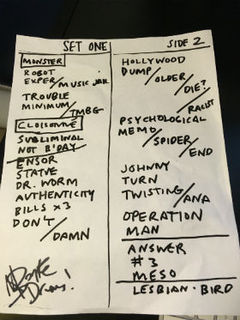 SET ONE
MONSTER
ROBOT
EXPER/MUSIC JAIL
TROUBLE
MINIMUM/TMBG
CLOISONNÉ
SUBLIMINAL
NOT B'DAY
ENSOR
STATUE
DR. WORM
AUTHENTICITY
BILLS x3
DON'T/DAMN
SIDE 2
HOLLYWOOD
DUMP/OLDER/DIE?
RACIST
PSYCHOLOGICAL
MEMO/SPIDER/END
JOHNNY
TURN
TWISTING/ANA
OPERATION
MAN
ANSWER
#3
MESO
LESBIAN · BIRD